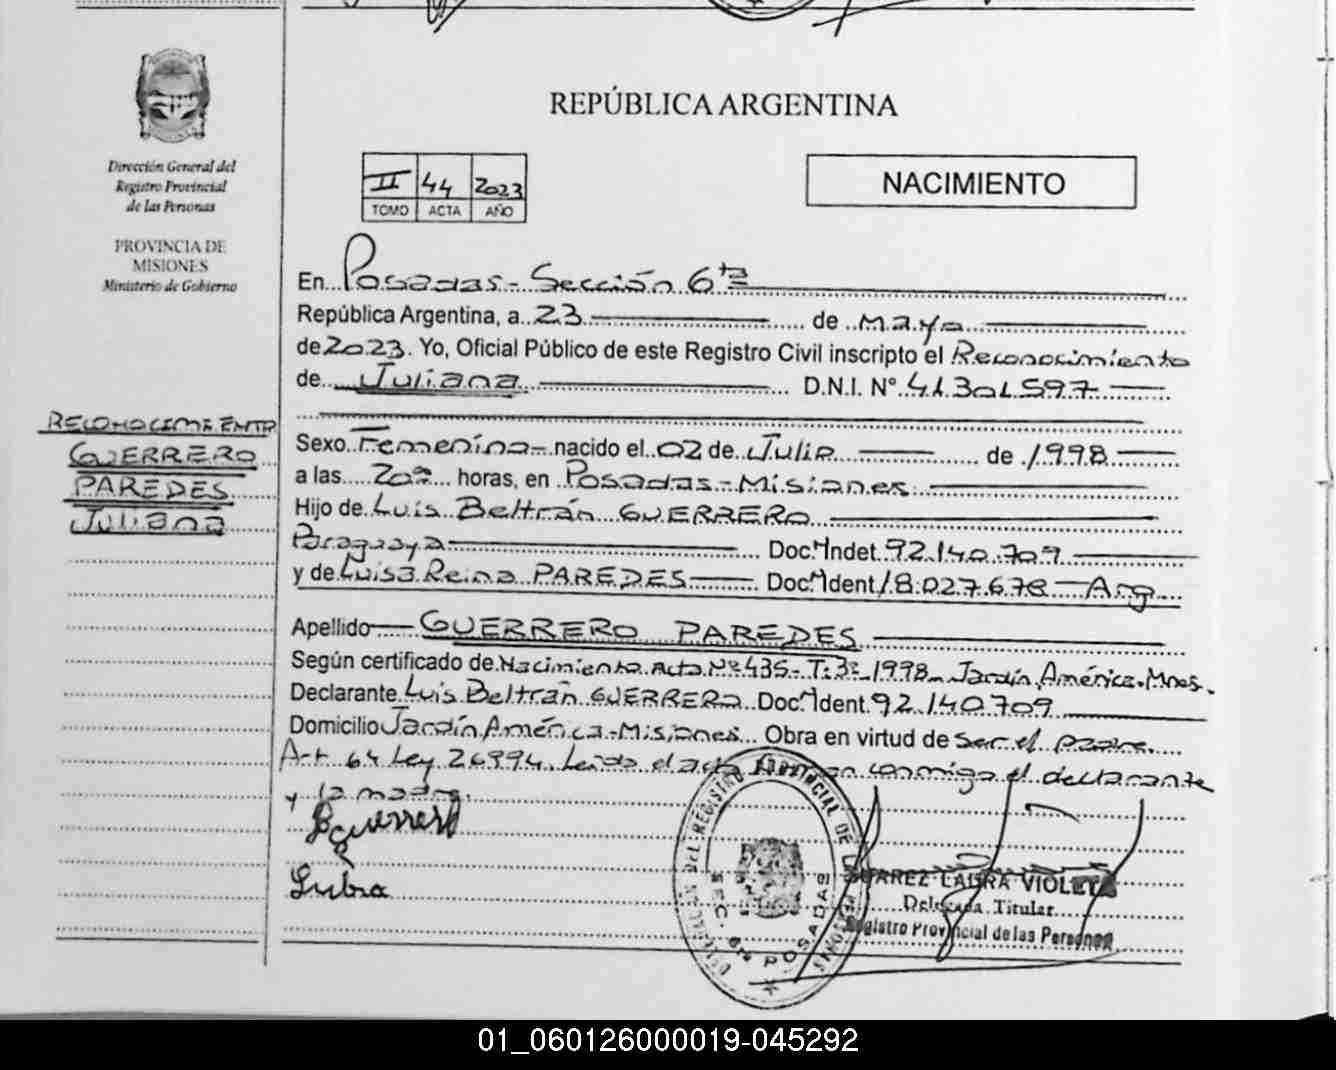 REPÚBLICA ARGENTINA
Dirección General del
Registro Provincial
de las Personas
PROVINCIA DE
MISIONES
Ministerio de Gobierno
II 44 2023
TOMO ACTA AÑO
NACIMIENTO
En Posadas - Sección 6ta
República Argentina, a 23 de Mayo
de 2023. Yo, Oficial Público de este Registro Civil inscripto el Reconocimiento
de Juliana D.N.I. N° 41.301.597
RECONOCIMIENTO
GUERRERO
PAREDES
Juliana
Sexo Femenino nacido el 02 de Julio de 1998
a las 20 horas, en Posadas - Misiones
Hijo de Luis Beltrán GUERRERO
Paraguaya Doc. Indet. 92.140.709
y de Luisa Reina PAREDES Doc. Ident 18.027.678 Arg
Apellido GUERRERO PAREDES
Según certificado de Nacimiento Acta N° 435 - T: 3° 1998 - Jardín América. Mnes.
Declarante Luis Beltrán GUERRERO Doc. Ident. 92.140.709
Domicilio Jardín América - Misiones Obra en virtud de ser el padre.
Art 64 Ley 26994. Leída el acta conmigo el declarante
y la madre.
SUAREZ LAURA VIOLETA
Delegada Titular
Registro Provincial de las Personas
SEC. 6ta POSADAS
01_060126000019-045292